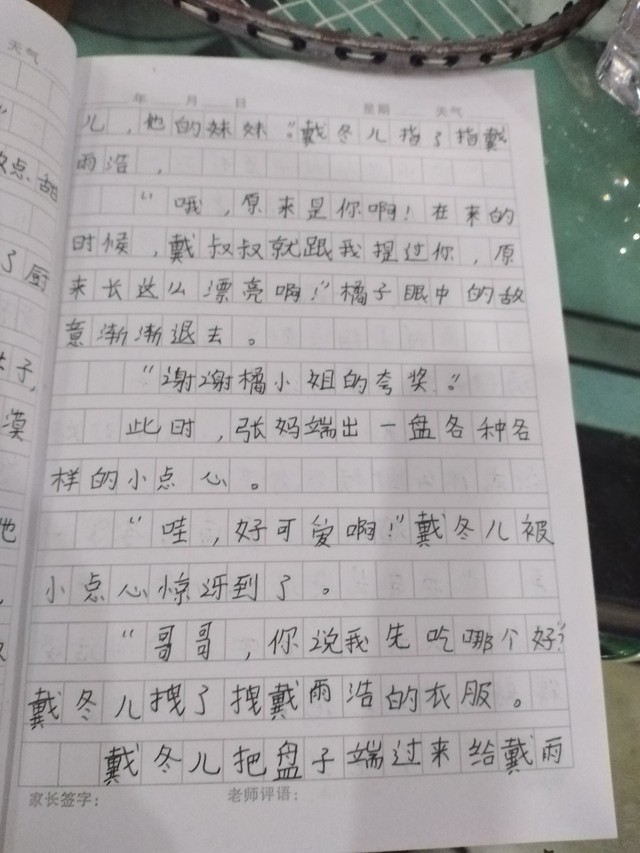 天气
年 月 日 星期 天气
儿，他的妹妹。”戴冬儿指了指戴
雨浩，
“哦，原来是你啊！在来的
时候，戴叔叔就跟我提过你，原
来长这么漂亮啊！”橘子眼中的敌
意渐渐退去。
“谢谢橘小姐的夸奖。”
此时，张妈端出一盘各种各
样的小点心。
“哇，好可爱啊！”戴冬儿被
小点心惊讶到了。
“哥哥，你说我先吃哪个好？”
戴冬儿拽了拽戴雨浩的衣服。
戴冬儿把盘子端过来给戴雨
家长签字： 老师评语：
点甜
了厨
子，
漠
他